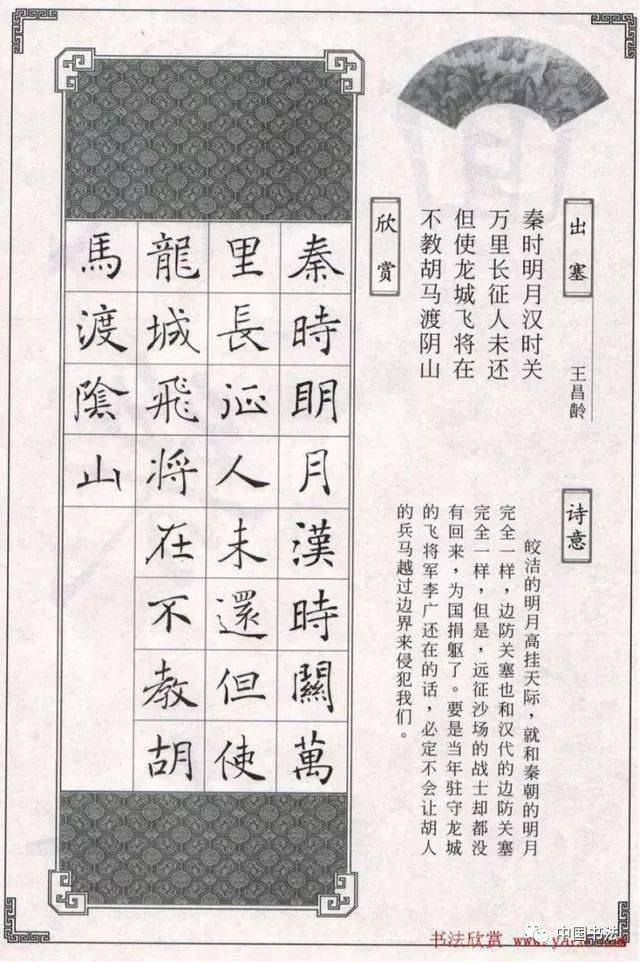 出塞
王昌龄
秦时明月汉时关
万里长征人未还
但使龙城飞将在
不教胡马渡阴山
诗意
皎洁的明月高挂天际，就和秦朝的明月
完全一样，边防关塞也和汉代的边防关塞
完全一样，但是，远征沙场的战士却都没
有回来，为国捐躯了。要是当年驻守龙城
的飞将军李广还在的话，必定不会让胡人
的兵马越过边界来侵犯我们。
欣赏
秦時明月漢時關萬
里長征人未還但使
龍城飛將在不教胡
馬渡陰山
书法欣赏
中国书法